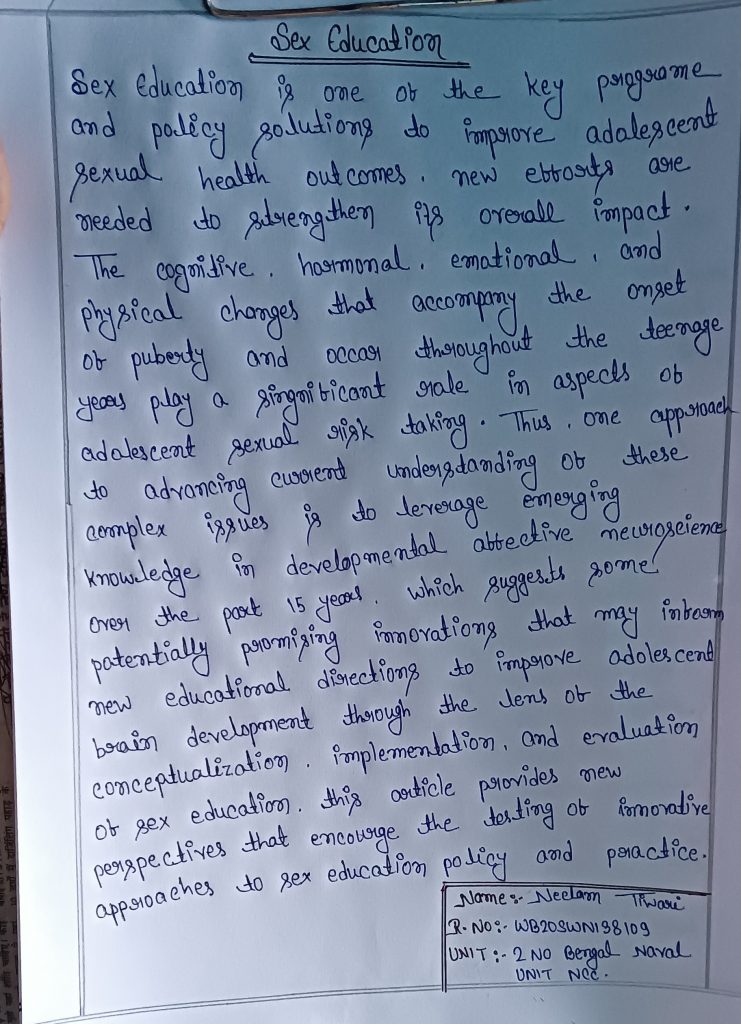 Sex Education
Sex Education is one of the key programe
and policy solutions to improve adalescent
sexual health outcomes. new efforts are
needed to strengthen its overall impact.
The cognitive, hormonal, emational, and
physical changes that accompany the onset
of puberty and occar throughout the teenage
years play a singnificant rale in aspects of
adalescent sexual risk taking. Thus, one approach
to advancing current understanding of these
complex issues is to leverage emerging
knowledge in developmental affective neuroscience
over the past 15 years. which suggests some
patentially promising innovations that may inform
new educational directions to improve adolescent
brain development through the lens of the
conceptualization, implementation, and evaluation
of sex education. this article provides new
perspectives that encourge the testing of innovative
approaches to sex education policy and practice.
Name:- Neelam Tiwari
R.No:- WB20SWN198109
UNIT:- 2 NO Bengal Naval
UNIT NCC.